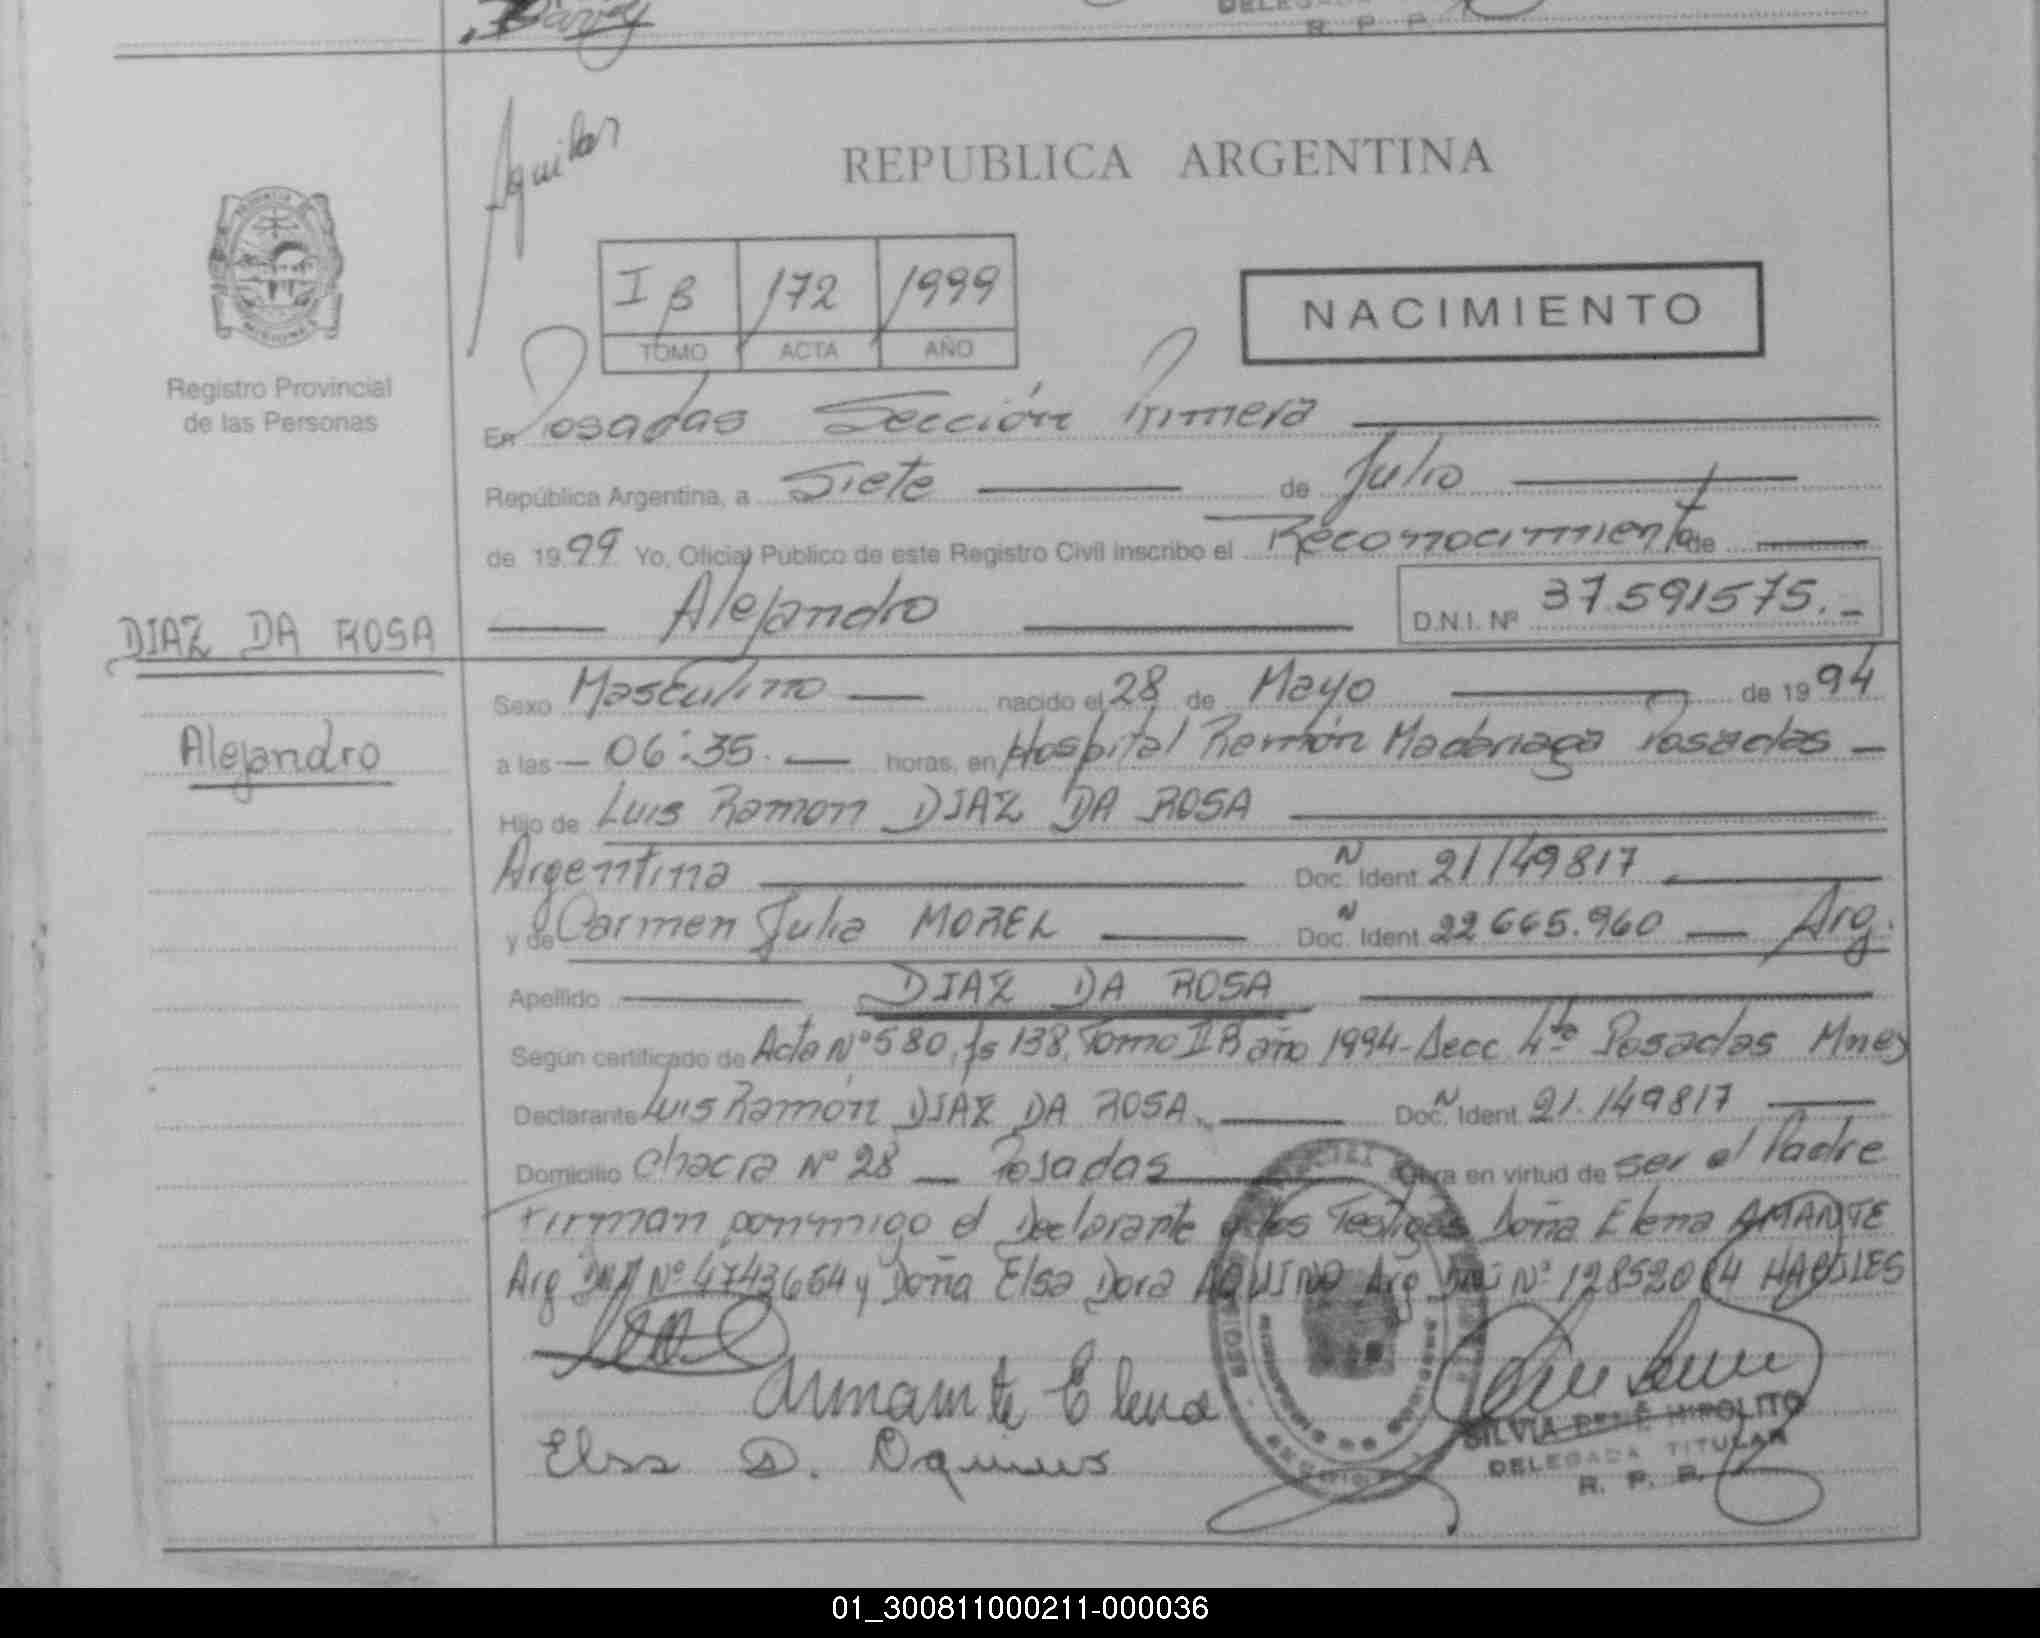 DELEGADA
R. P. P.
Aguilar
REPUBLICA ARGENTINA
I B 172 1999
TOMO ACTA AÑO
NACIMIENTO
Registro Provincial
de las Personas
En Posadas Sección Primera
República Argentina, a Siete de Julio
de 1999 Yo, Oficial Público de este Registro Civil inscribo el Reconocimiento de
Alejandro D.N.I. Nº 37.591575.-
DIAZ DA ROSA
Alejandro
Sexo Masculino nacido el 28 de Mayo de 1994
a las 06:35. horas, en Hospital Ramón Madariaga Posadas
Hijo de Luis Ramon DIAZ DA ROSA
Argentina Doc. N Ident 21149817
y de Carmen Julia MOREL Doc. N Ident 22665.960 Arg.
Apellido DIAZ DA ROSA
Según certificado de Acta Nº 580, fs 138, Tomo II B año 1994 - Secc 4ta Posadas Mnes
Declarante Luis Ramón DIAZ DA ROSA. Doc. N Ident 21.149817
Domicilio Chacra Nº 28 Posadas Obra en virtud de ser el Padre
Firman conmigo el Declarante y los Testigos Doña Elena AMANTE
Arg DNI Nº 4743654 y Doña Elsa Dora AQUINO Arg DNI Nº 12852014 HABILES
Amante Elena
Elsa D. Aquino
SILVIA RENÉ HIPOLITO
DELEGADA TITULAR
R. P. P.
01_300811000211-000036